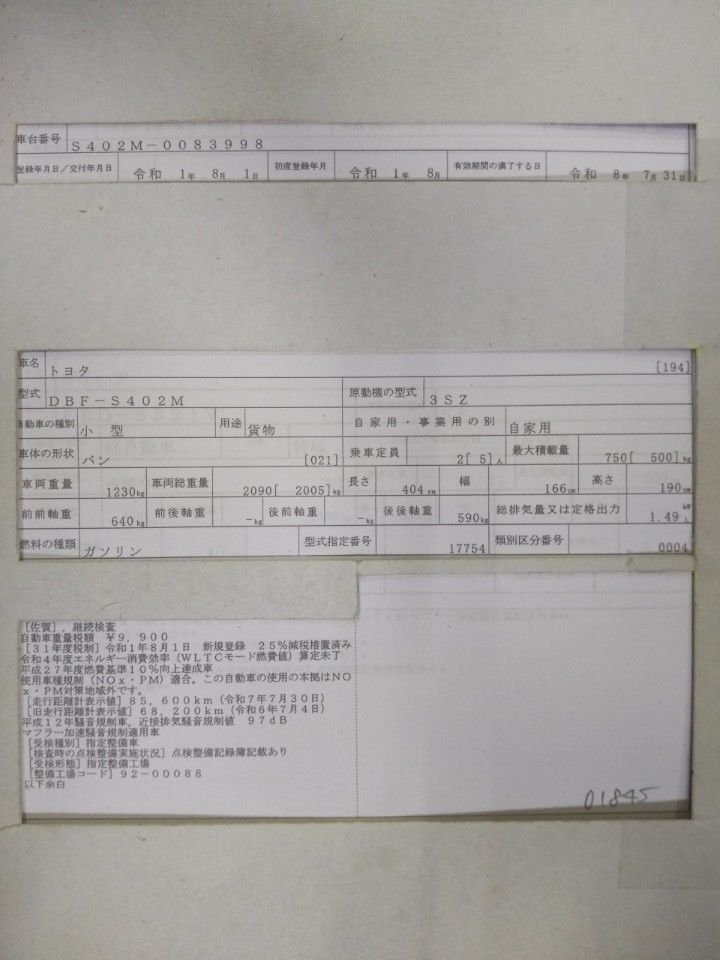 車台番号 S402M-0083998
登録年月日/交付年月日 令和 1年 8月 1日 初度登録年月 令和 1年 8月 有効期間の満了する日 令和 8年 7月31日
車名 トヨタ [194]
型式 DBF-S402M 原動機の型式 3SZ
自動車の種別 小 型 用途 貨物 自家用・事業用の別 自家用
車体の形状 バン [021] 乗車定員 2[ 5]人 最大積載量 750[ 500]kg
車両重量 1230kg 車両総重量 2090[ 2005]kg 長さ 404cm 幅 166cm 高さ 190cm
前前軸重 640kg 前後軸重 -kg 後前軸重 -kg 後後軸重 590kg 総排気量又は定格出力 1.49 kW L
燃料の種類 ガソリン 型式指定番号 17754 類別区分番号 0004
[佐賀], 継続検査
自動車重量税額 ¥9,900
[31年度税制]令和1年8月1日 新規登録 25%減税措置済み
令和4年度エネルギー消費効率(WLTCモード燃費値)算定未了
平成27年度燃費基準10%向上達成車
使用車種規制(NOx・PM)適合。この自動車の使用の本拠はNO
x・PM対策地域外です。
[走行距離計表示値]85,600km(令和7年7月30日)
[旧走行距離計表示値]68,200km(令和6年7月4日)
平成12年騒音規制車,近接排気騒音規制値 97dB
マフラー加速騒音規制適用車
[受検種別]指定整備車
[検査時の点検整備実施状況]点検整備記録簿記載あり
[受検形態]指定整備工場
[整備工場コード]92-00088
以下余白
01845